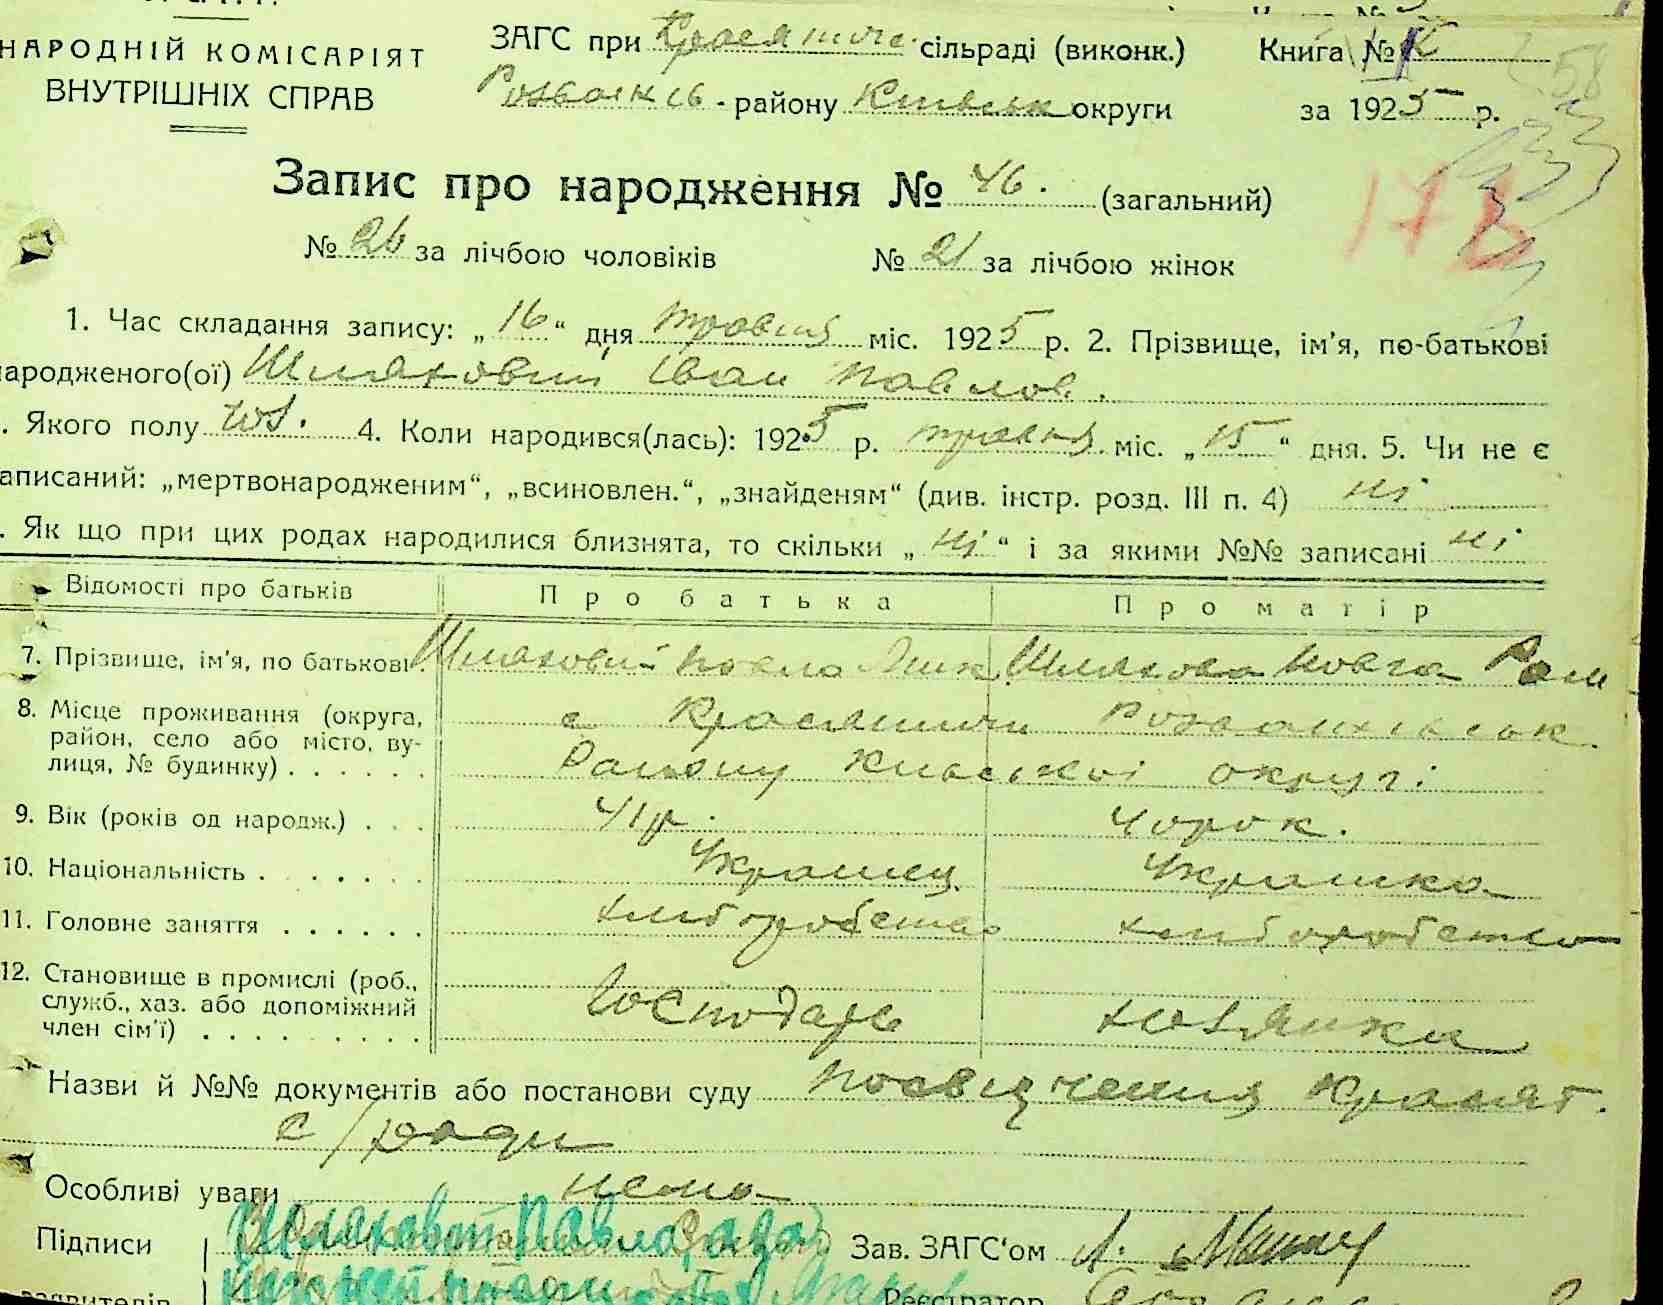 НАРОДНІЙ КОМІСАРІЯТ
ВНУТРІШНІХ СПРАВ
ЗАГС при Красятиче. сільраді (виконк.) Книга №
Розважів. району Київськ округи за 1925 р.
Запис про народження № 46. (загальний)
№ 26 за лічбою чоловіків № 21 за лічбою жінок
1. Час складання запису: „16“ дня травня міс. 1925 р. 2. Прізвище, ім'я, по-батькові
ародженого(ої) Шляховий Іван Павлов.
. Якого полу чол. 4. Коли народився(лась): 1925 р. травня міс. „15“ дня. 5. Чи не є
аписаний: „мертвонародженим“, „всиновлен.“, „знайденям“ (див. інстр. розд. III п. 4) ні
. Як що при цих родах народилися близнята, то скільки „ні“ і за якими №№ записані ні
Відомості про батьків Про батька Про матір
7. Прізвище, ім'я, по батькові Шляховий Павло Шляхова Ром
8. Місце проживання (округа, район, село або місто, вулиця, № будинку) . . . . . . с Красятичи Розважівськ.
Району Київської округі
9. Вік (років од народж.) . . . 41 р. 40 рок.
10. Національність . . . . . . Українец Українка
11. Головне заняття . . . . . . хліборобство хліборобство
12. Становище в промислі (роб., служб., хаз. або допоміжний член сім'ї) . . . . . . . . . Господарь хозяйка
Назви й №№ документів або постанови суду посвідчення Красят.
с/ради
Особливі уваги нема
Підписи Шляховой Павло Зав. ЗАГС'ом
Реєстратор